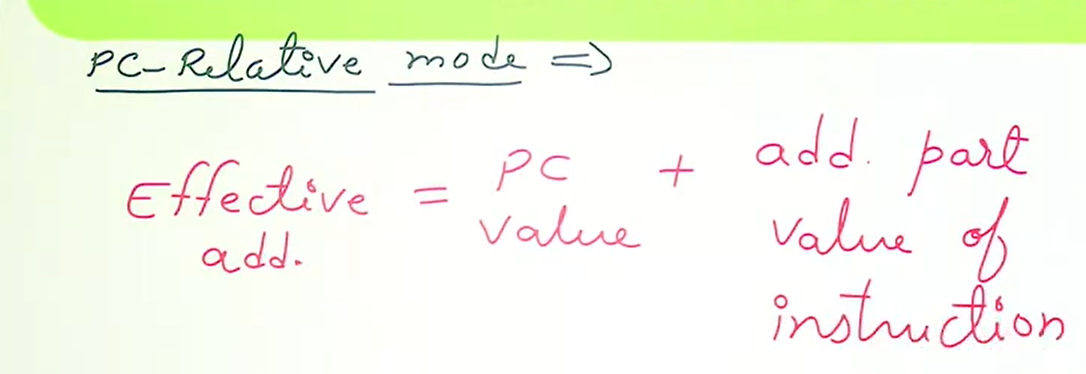 PC-Relative mode ⇒
Effective add. = PC value + add. part value of instruction